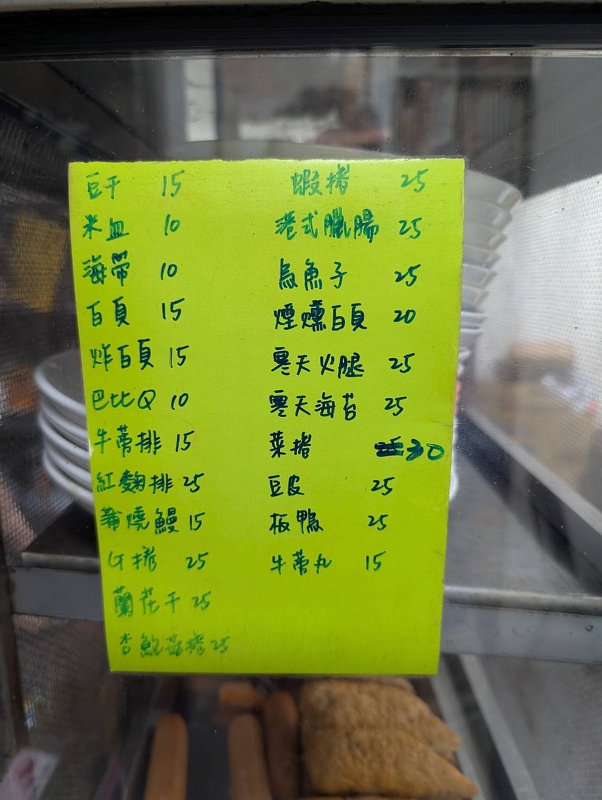 豆干 15
米血 10
海帶 10
百頁 15
炸百頁 15
巴比Q 10
牛蒡排 15
紅麴排 25
蒲燒鰻 15
G捲 25
蘭花干 25
杏鮑菇捲 25
蝦捲 25
港式臘腸 25
烏魚子 25
煙燻百頁 20
寒天火腿 25
寒天海苔 25
菜捲 30
豆皮 25
板鴨 25
牛蒡丸 15